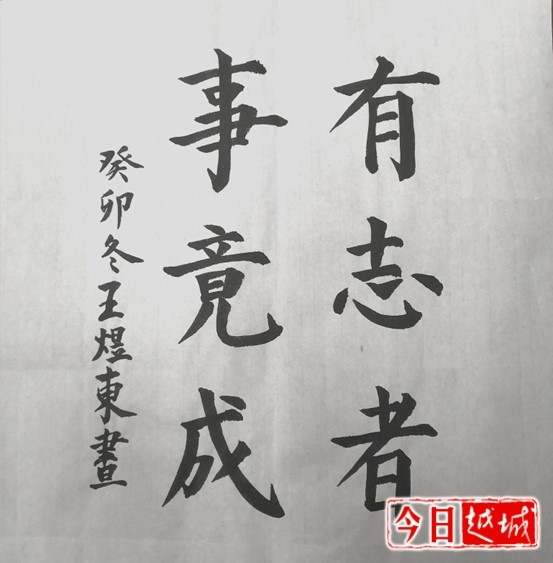 有志者
事竟成
癸卯冬王煜東書
今日越城